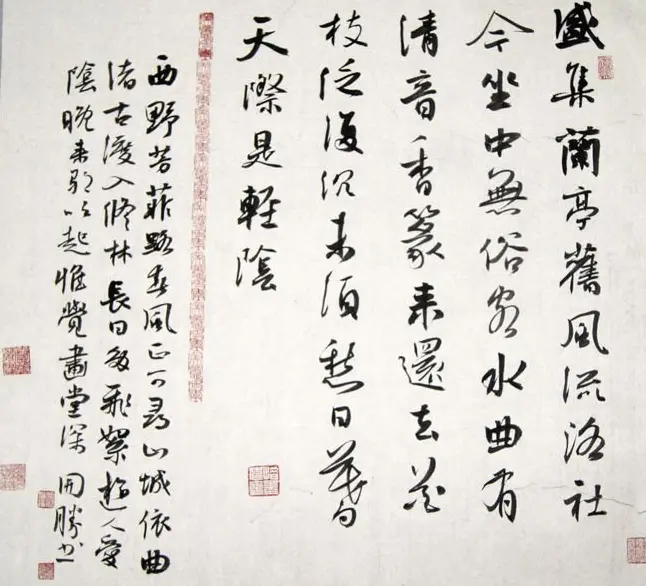 盛集蘭亭舊風流洛社
今坐中無俗客水曲有
清音香篆来還去花
枝泛復沉未須愁日暮
天際是輕陰
西野芳菲路春風正可尋山城依曲
渚古渡入修林長日多飛絮遊人愛
陰晚来歌吹起惟覺畫堂深 開勝书